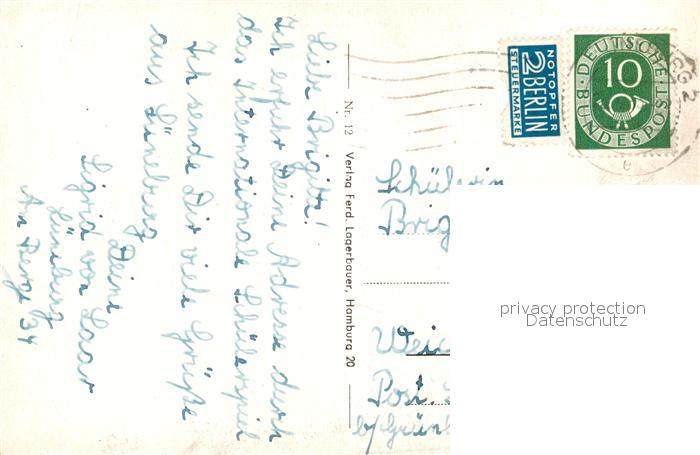 Liebe Brigitte!
Ich erfuhr Deine Adresse durch
das Internationale Schülerspiel
Ich sende Dir viele Grüße
aus Lüneburg
Deine
Sigrid von Laar
Lüneburg
Am Berge 34
Nr. 12 Verlag Ferd. Lagerbauer, Hamburg 20
NOTOPFER
2 BERLIN
STEUERMARKE
DEUTSCHE
10
BUNDESPOST
Schülerin
Brig
Weic
Post.
b/Grünb
privacy protection
Datenschutz